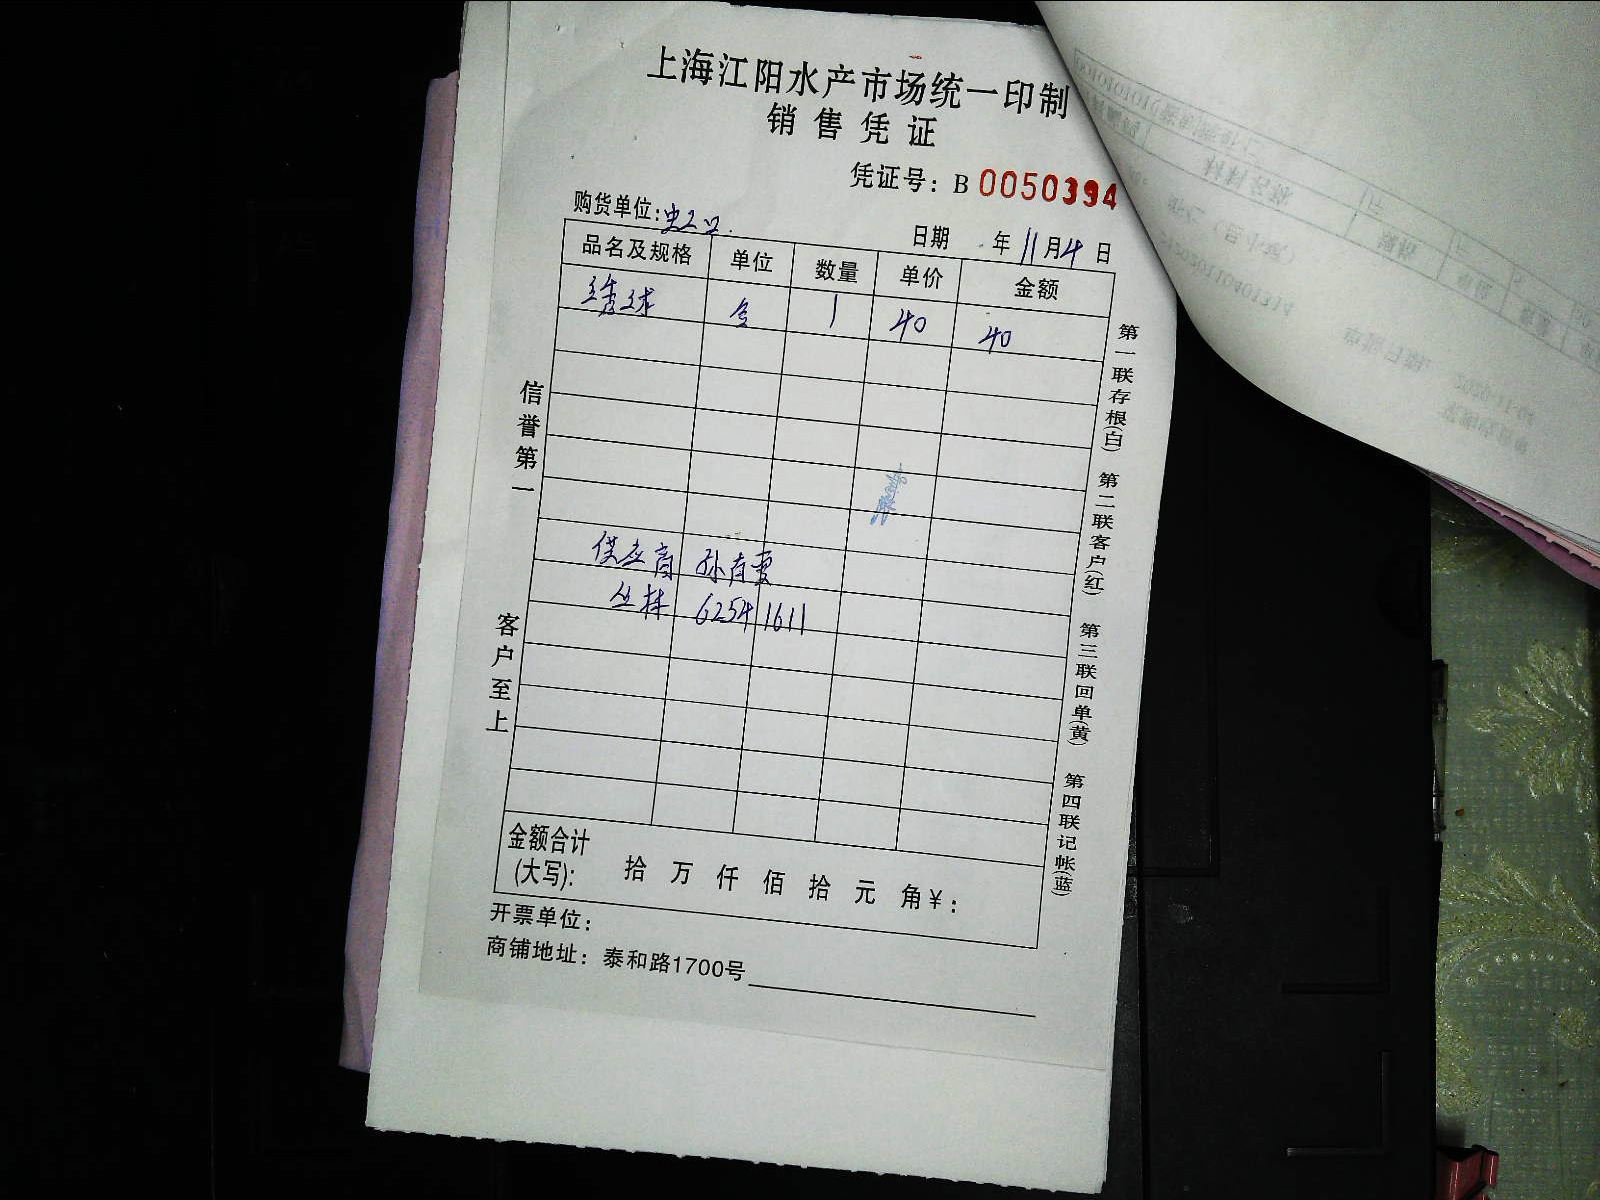 上海江阳水产市场统一印制
销售凭证
凭证号：B 0050394
购货单位：
日期 年 11 月 4 日
品名及规格 单位 数量 单价 金额
1 40 40
供应商 孙育雯
丛林 62541611
信誉第一
客户至上
第一联存根(白) 第二联客户(红) 第三联回单(黄) 第四联记帐(蓝)
金额合计
(大写): 拾 万 仟 佰 拾 元 角 ¥:
开票单位：
商铺地址：泰和路1700号